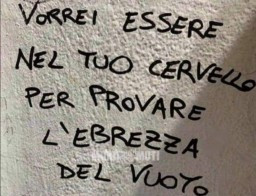 VORREI ESSERE
NEL TUO CERVELLO
PER PROVARE
L'EBREZZA
DEL VUOTO